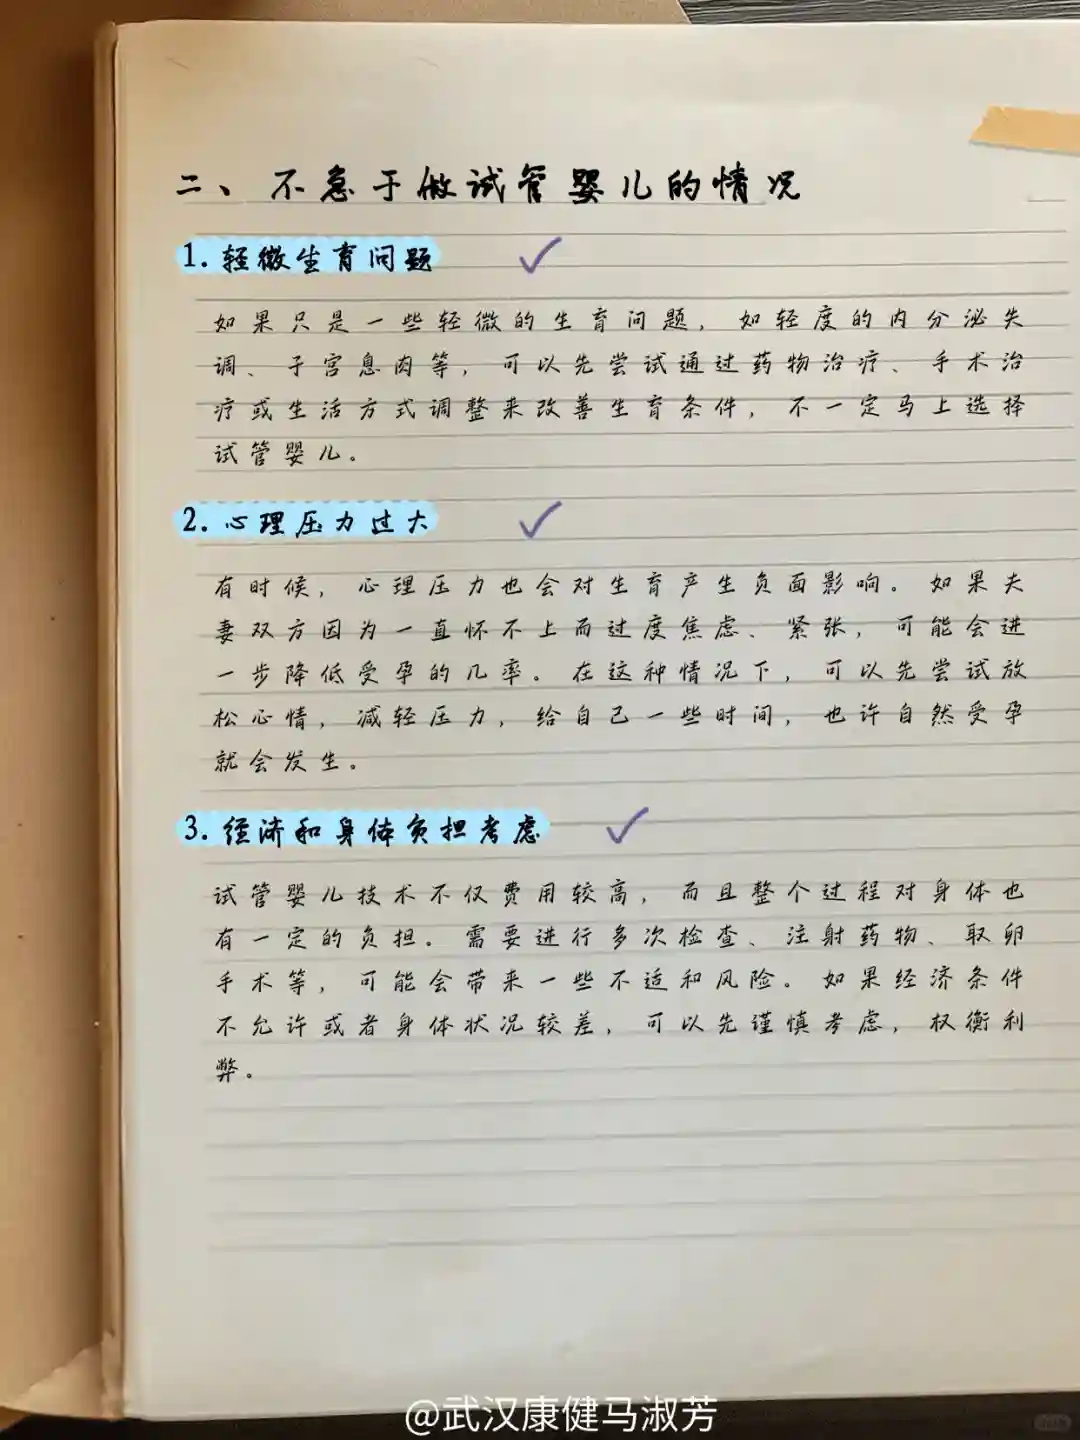 二、不急于做试管婴儿的情况
1.轻微生育问题
如果只是一些轻微的生育问题，如轻度的内分泌失
调、子宫息肉等，可以先尝试通过药物治疗、手术治
疗或生活方式调整来改善生育条件，不一定马上选择
试管婴儿。
2.心理压力过大
有时候，心理压力也会对生育产生负面影响。如果夫
妻双方因为一直怀不上而过度焦虑、紧张，可能会进
一步降低受孕的几率。在这种情况下，可以先尝试放
松心情，减轻压力，给自己一些时间，也许自然受孕
就会发生。
3.经济和身体负担考虑
试管婴儿技术不仅费用较高，而且整个过程对身体也
有一定的负担。需要进行多次检查、注射药物、取卵
手术等，可能会带来一些不适和风险。如果经济条件
不允许或者身体状况较差，可以先谨慎考虑，权衡利
弊。
@武汉康健马淑芳